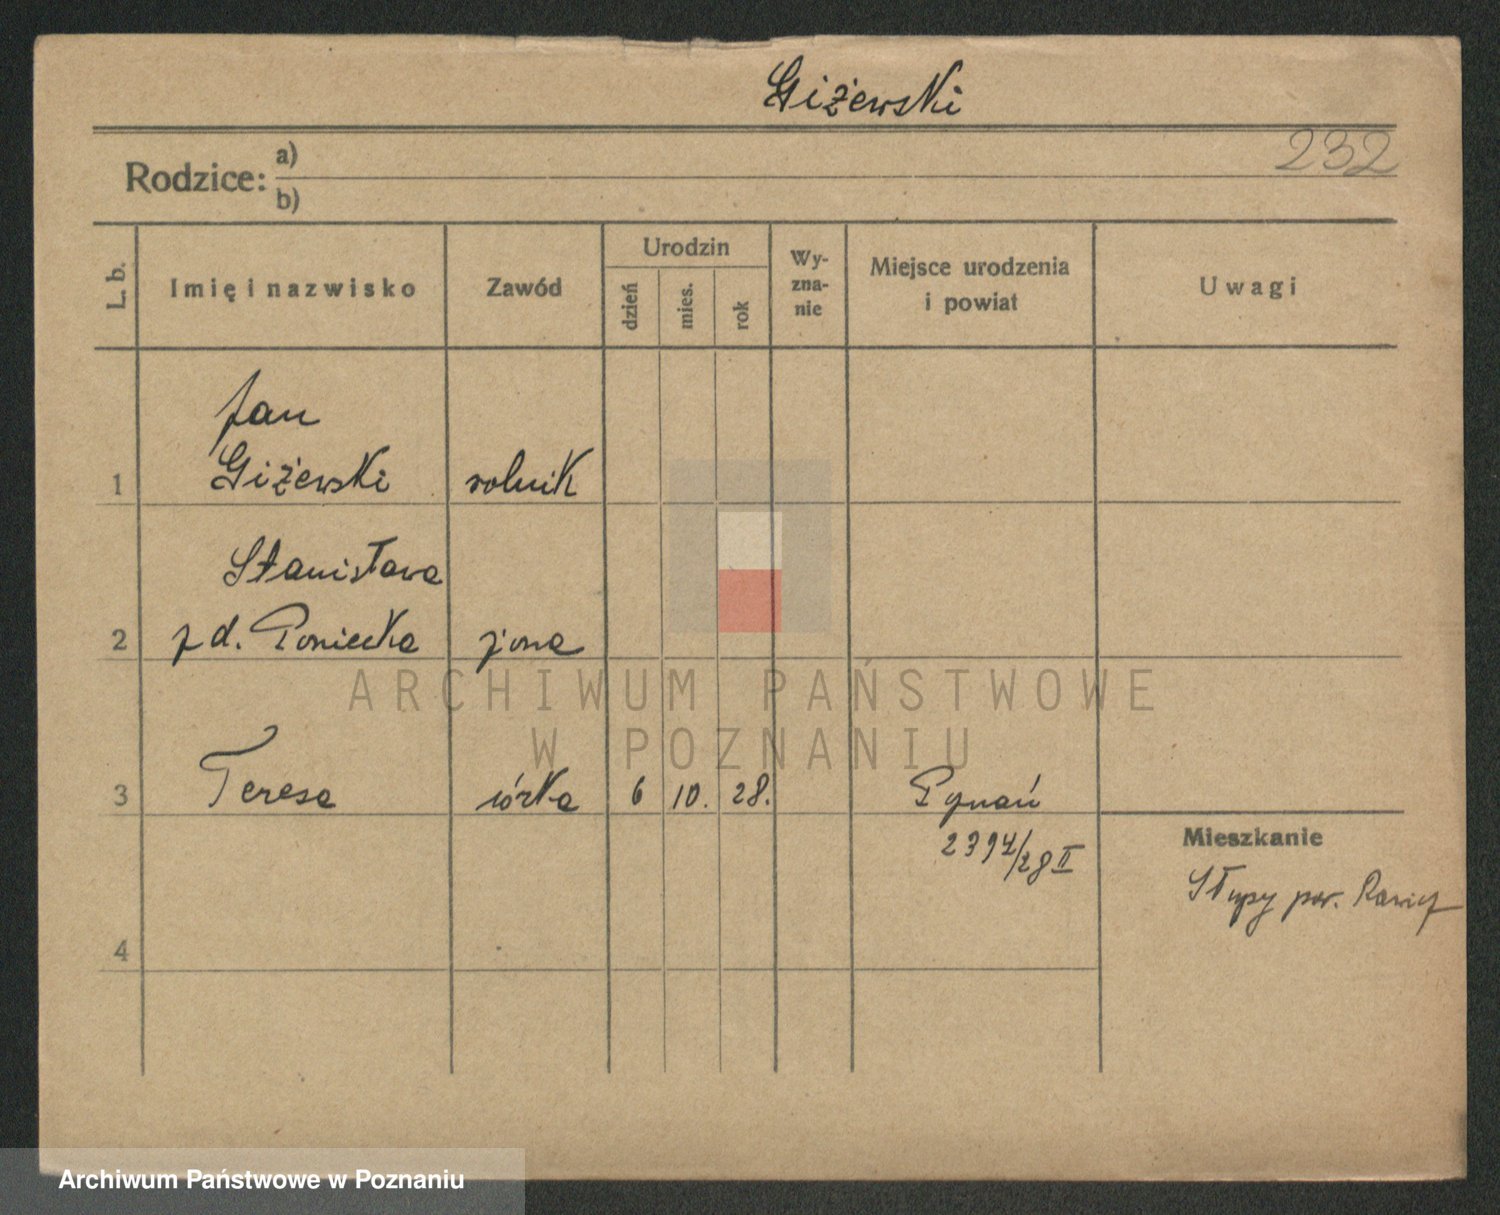 Giżewski
232
Rodzice: a)
b)
L. b.
Imię i nazwisko
Zawód
Urodzin
dzień
mies.
rok
Wy-
zna-
nie
Miejsce urodzenia
i powiat
Uwagi
Jan
1 Giżewski rolnik
Stanisława
2 z d. Poniecka żona
ARCHIWUM PAŃSTWOWE
W POZNANIU
3 Teresa córka 6 10. 28. Poznań
2394/28 II
Mieszkanie
Słupy pow. Rawicz
4
Archiwum Państwowe w Poznaniu